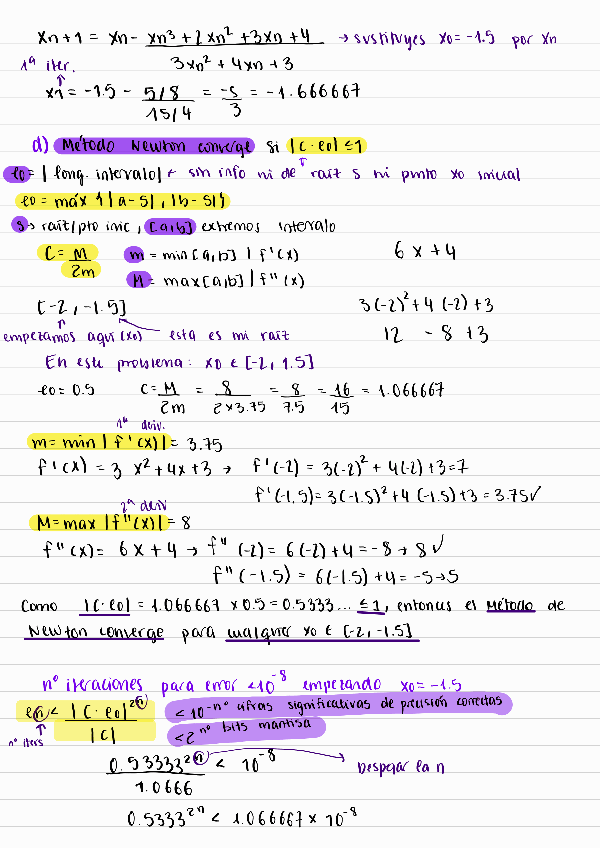 xn+1 = xn - xn³ + 2xn² + 3xn + 4 / 3xn² + 4xn + 3 → sustituyes x0 = -1.5 por xn
1ª iter.
x1 = -1.5 - 5/8 / 15/4 = -5/3 = -1.666667
d) Método Newton converge si |C·e0| ≤ 1
e0 = | long. intervalo | ← sin info ni de raíz s ni punto x0 inicial
e0 = máx { |a-s|, |b-s| }
s → raíz/pto inic, [a,b] extremos intervalo
C = M / 2m
m = min[a,b] | f'(x)
6x + 4
M = max[a,b] | f''(x)
[-2, -1.5]
3(-2)² + 4(-2) + 3
empezamos aquí (x0) esta es mi raíz
12 - 8 + 3
En este problema: x0 ∈ [-2, 1.5]
e0 = 0.5 C = M/2m = 8 / 2×3.75 = 8/7.5 = 16/15 = 1.066667
1ª deriv.
m = min | f'(x) | = 3.75
f'(x) = 3x² + 4x + 3 → f'(-2) = 3(-2)² + 4(-2) + 3 = 7
f'(-1.5) = 3(-1.5)² + 4(-1.5) + 3 = 3.75 ✓
2ª deriv
M = max | f''(x) | = 8
f''(x) = 6x + 4 → f''(-2) = 6(-2) + 4 = -8 → 8 ✓
f''(-1.5) = 6(-1.5) + 4 = -5 → 5
Como |C·e0| = 1.066667 × 0.5 = 0.5333... ≤ 1, entonces el Método de
Newton converge para cualquier x0 ∈ [-2, -1.5]
nº iteraciones para error < 10⁻⁸ empezando x0 = -1.5
en < |C·e0|^2^n / |C|
< 10^-nº cifras significativas de precisión correctas
nº iters
< 2^nº bits mantisa
0.53333^2^n / 1.0666 < 10⁻⁸
Despejar la n
0.5333^2^n < 1.066667 × 10⁻⁸